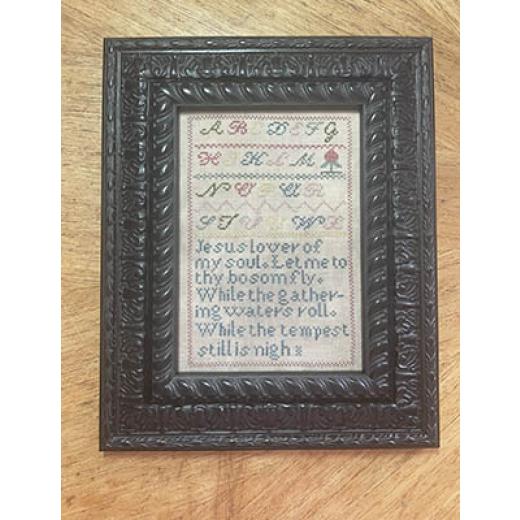 A B C D E F G
H I K L M
N O P Q R
S T U V W X
Jesus lover of
my soul. Let me to
thy bosom fly.
While the gather-
ing waters roll.
While the tempest
still is nigh